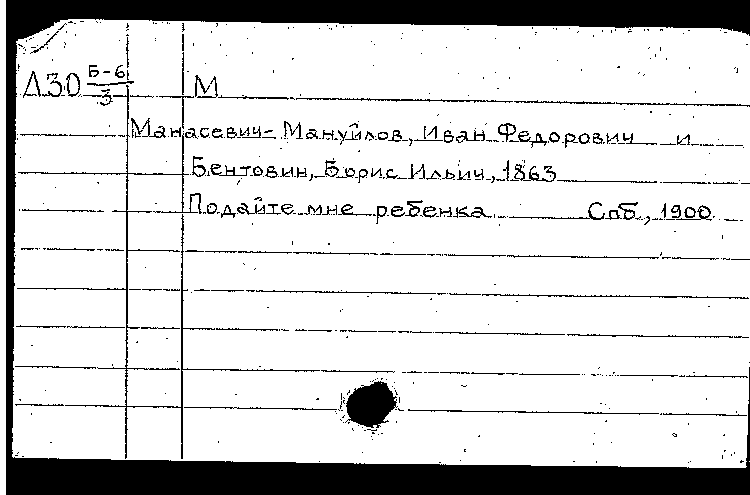 Л30 Б-6/3 М
Манасевич-Мануйлов, Иван Федорович и
Бентовин, Борис Ильич, 1863
Подайте мне ребенка Спб, 1900